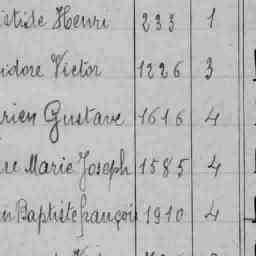 istide Henri 233 1
idore Victor 1226 3
rien Gustave 1616 4
re Marie Joseph 1585 4
n Baptiste françois 1910 4